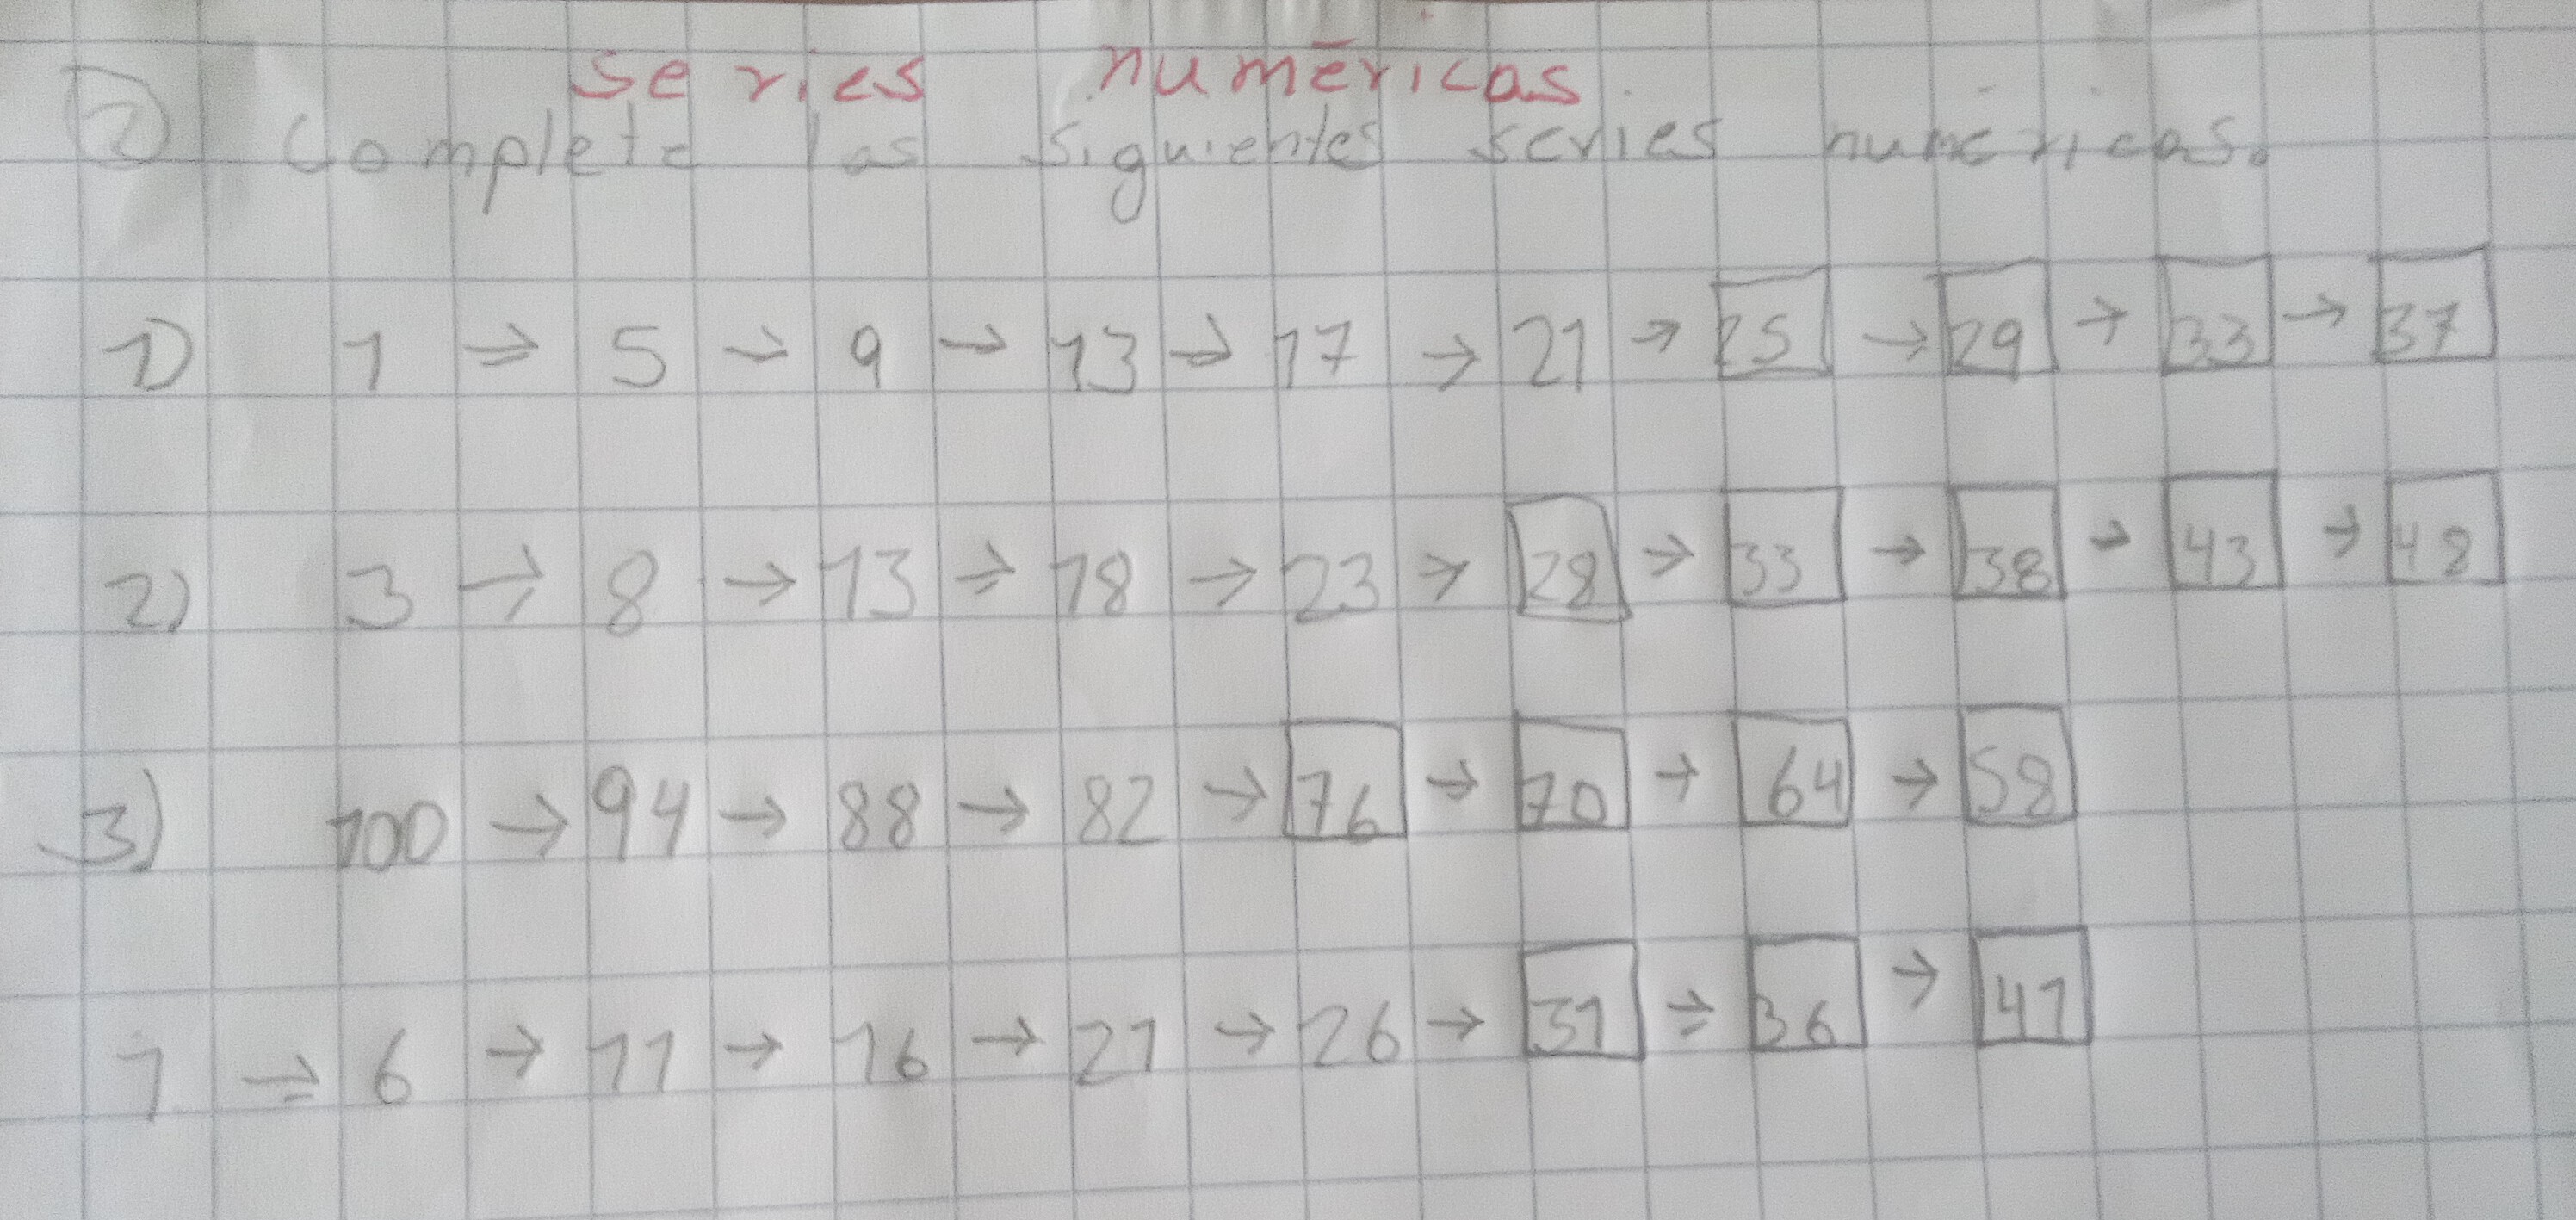 series numéricas
② Complete las siguientes series numéricas.
1) 1 → 5 → 9 → 13 → 17 → 21 → 25 → 29 → 33 → 37
2) 3 → 8 → 13 → 18 → 23 → 28 → 33 → 38 → 43 → 48
3) 100 → 94 → 88 → 82 → 76 → 70 → 64 → 58
1 → 6 → 11 → 16 → 21 → 26 → 31 → 36 → 41